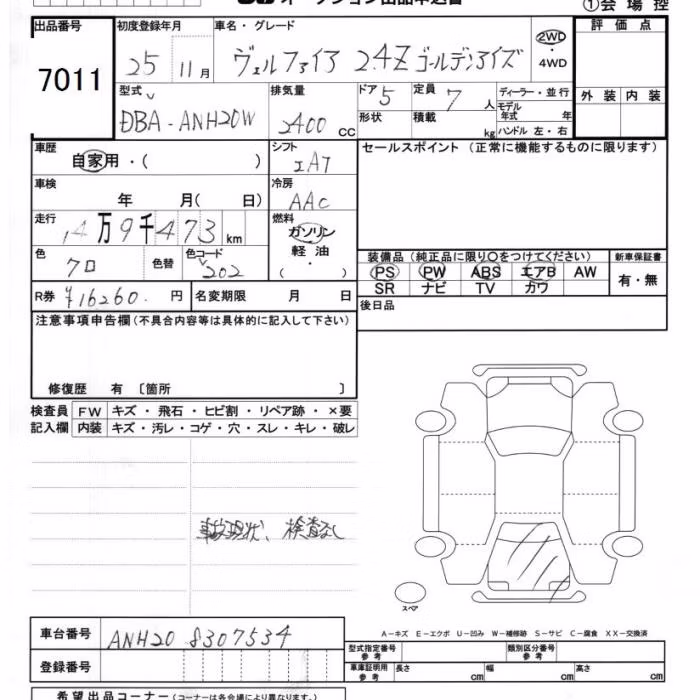 オークション出品申込書
①会場控
出品番号 初度登録年月 車名・グレード 評価点
7011 25 11月 ヴェルファイア 2.4Z ゴールデンアイズ 2WD・4WD
型式 排気量 ドア 5 定員 7人 ディーラー・並行 外装 内装
DBA-ANH20W 2400cc 形状 積載 kg モデル年式 年
ハンドル 左・右
車歴 自家用・( ) シフト IAT セールスポイント (正常に機能するものに限ります)
車検 年 月( 日) 冷房 AAC
走行 14万9千473km 燃料 ガソリン 軽油 ( ・ )
色 クロ 色替 色コード 202 装備品 (純正品に限り○をつけてください) 新車保証書
PS PW ABS エアB AW 有・無
SR ナビ TV カワ
R券 ¥16260. 円 名変期限 月 日 後日品
注意事項申告欄 (不具合内容等は具体的に記入して下さい)
修復歴 有 〔箇所 〕
検査員 FW キズ・飛石・ヒビ割・リペア跡・×要
記入欄 内装 キズ・汚レ・コゲ・穴・スレ・キレ・破レ
事故現状、検査なし
スペア
A－キズ E－エクボ U－凹み W－補修跡 S－サビ C－腐食 XX－交換済
車台番号 ANH20 8307534 型式指定番号 参考 類別区分番号 参考
登録番号 車庫証明用 参考 長さ cm 幅 cm 高さ cm
希望出品コーナー (コーナーは各会場により異なります。)